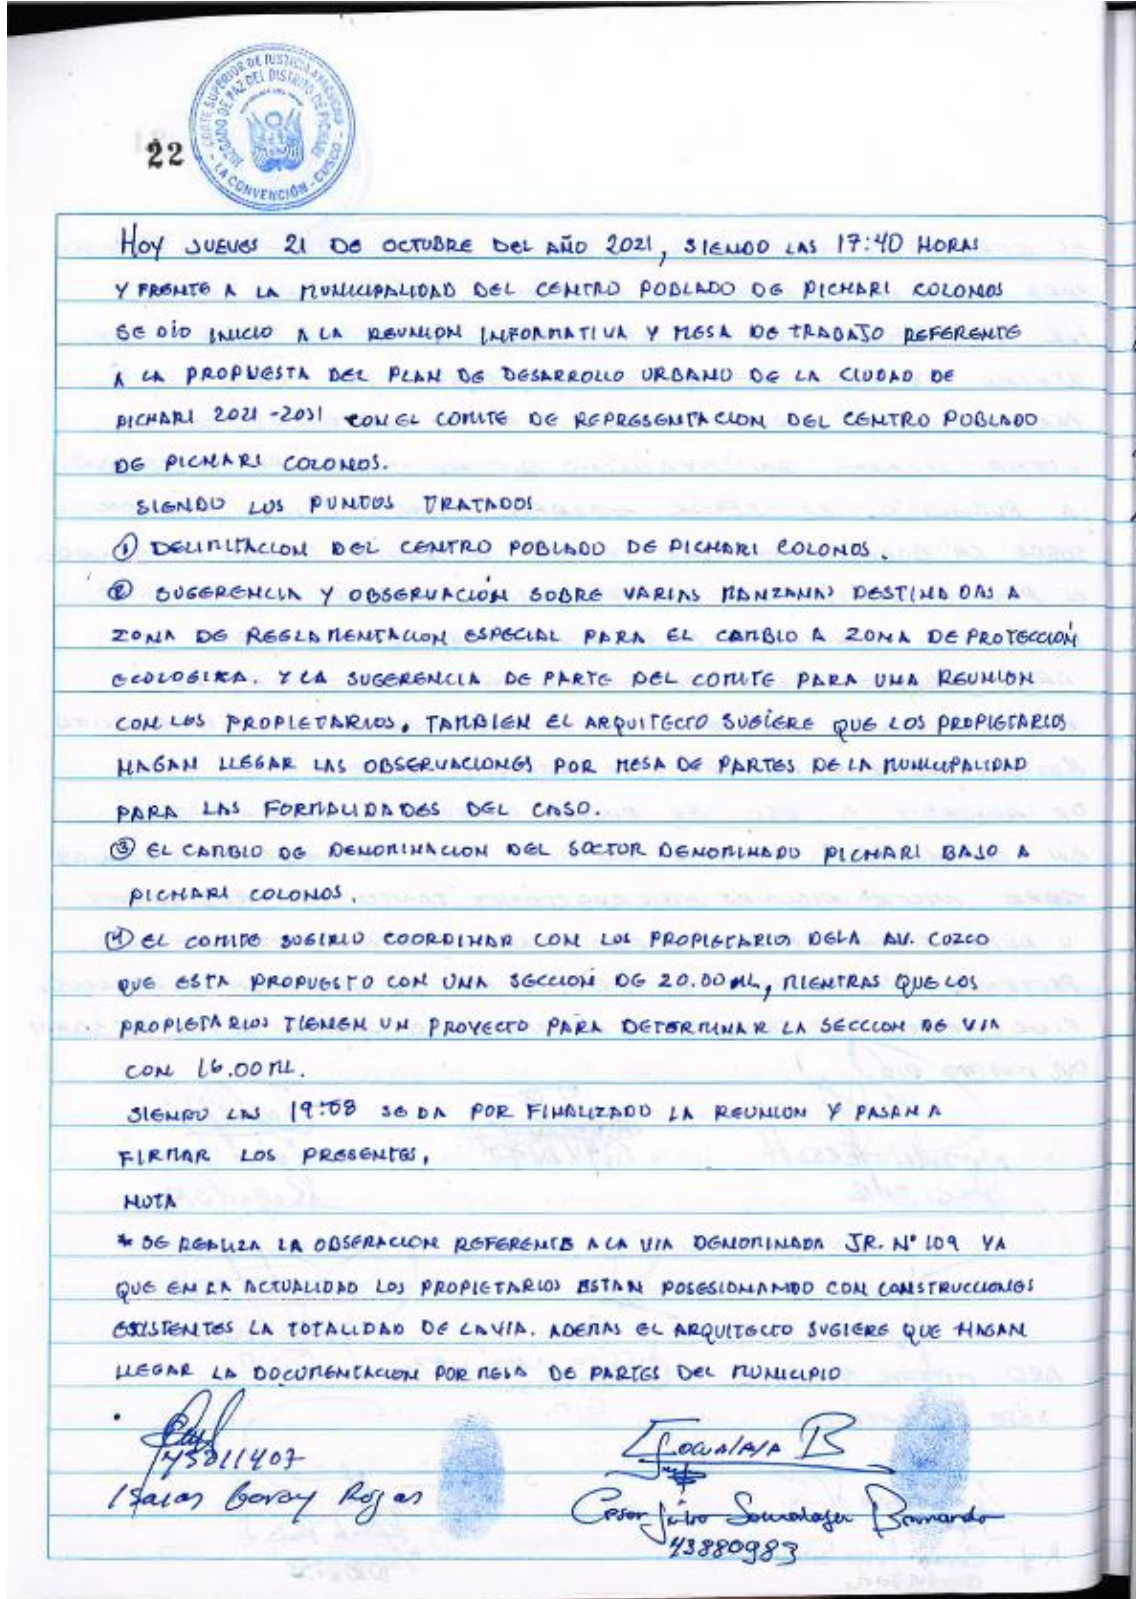 CORTE SUPERIOR DE JUSTICIA AYACUCHO
JUZGADO DE PAZ DEL DISTRITO DE PICHARI
- LA CONVENCIÓN - CUSCO -
22
HOY JUEVES 21 DE OCTUBRE DEL AÑO 2021, SIENDO LAS 17:40 HORAS
Y FRENTE A LA MUNICIPALIDAD DEL CENTRO POBLADO DE PICHARI COLONOS
SE DIO INICIO A LA REUNION INFORMATIVA Y MESA DE TRABAJO REFERENTE
A LA PROPUESTA DEL PLAN DE DESARROLLO URBANO DE LA CIUDAD DE
PICHARI 2021-2031 CON EL COMITE DE REPRESENTACION DEL CENTRO POBLADO
DE PICHARI COLONOS.
SIENDO LOS PUNTOS TRATADOS
① DELIMITACION DEL CENTRO POBLADO DE PICHARI COLONOS.
② SUGERENCIA Y OBSERVACIÓN SOBRE VARIAS MANZANAS DESTINADAS A
ZONA DE REGLAMENTACION ESPECIAL PARA EL CAMBIO A ZONA DE PROTECCIÓN
ECOLOGIKA. Y LA SUGERENCIA DE PARTE DEL COMITE PARA UNA REUNION
CON LOS PROPIETARIOS. TAMBIEN EL ARQUITECTO SUGIERE QUE LOS PROPIETARIOS
HAGAN LLEGAR LAS OBSERVACIONES POR MESA DE PARTES DE LA MUNICIPALIDAD
PARA LAS FORMALIDADES DEL CASO.
③ EL CAMBIO DE DENOMINACION DEL SECTOR DENOMINADO PICHARI BAJO A
PICHARI COLONOS.
④ EL COMITE SUGIRIO COORDINAR CON LOS PROPIETARIOS DE LA AV. COZCO
QUE ESTA PROPUESTO CON UNA SECCIÓN DE 20.00 ML, MIENTRAS QUE LOS
PROPIETARIOS TIENEN UN PROYECTO PARA DETERMINAR LA SECCCION DE VIA
CON 16.00 ML.
SIENDO LAS 19:08 SE DA POR FINALIZADO LA REUNION Y PASAN A
FIRMAR LOS PRESENTES,
NOTA
* SE REALIZA LA OBSERACION REFERENTE A LA VIA DENOMINADA JR. N° 109 YA
QUE EN LA ACTUALIDAD LOS PROPIETARIOS ESTAN POSESIONANDO CON CONSTRUCCIONES
EXISTENTES LA TOTALIDAD DE LA VIA. ADEMAS EL ARQUITECTO SUGIERE QUE HAGAN
LLEGAR LA DOCUMENTACION POR MESA DE PARTES DEL MUNICIPIO
45811407
Isaias Garay Rojas
Socualaya B
Cesar Julio Socualaya Bernardo
43880983